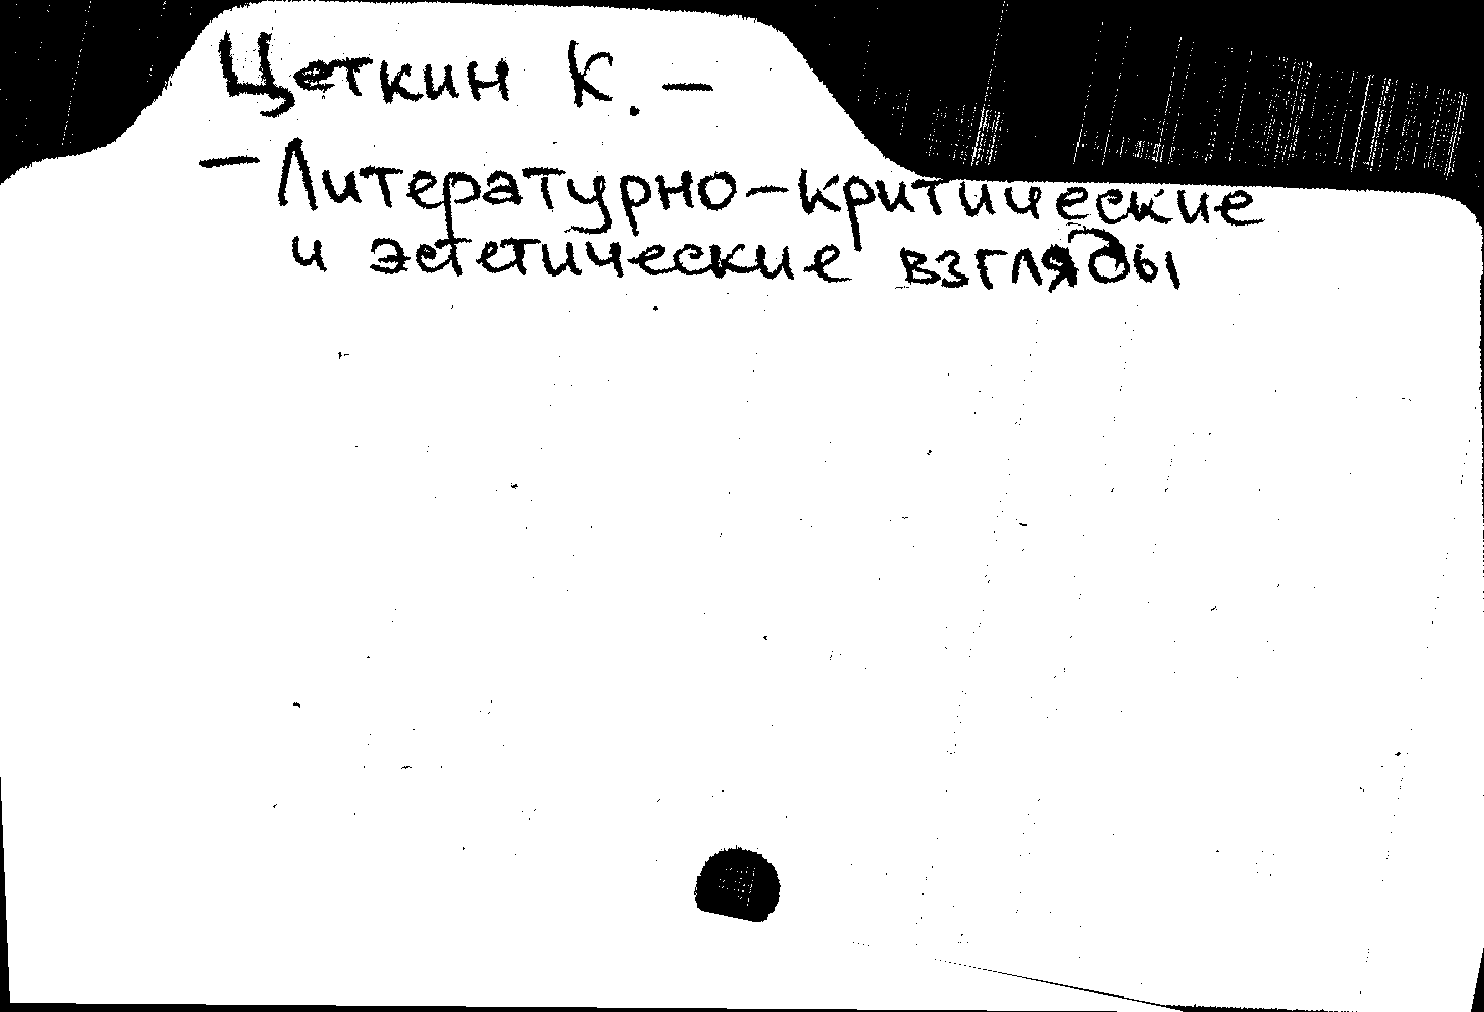 Цеткин К. —
— Литературно-критические
и эстетические взгляды